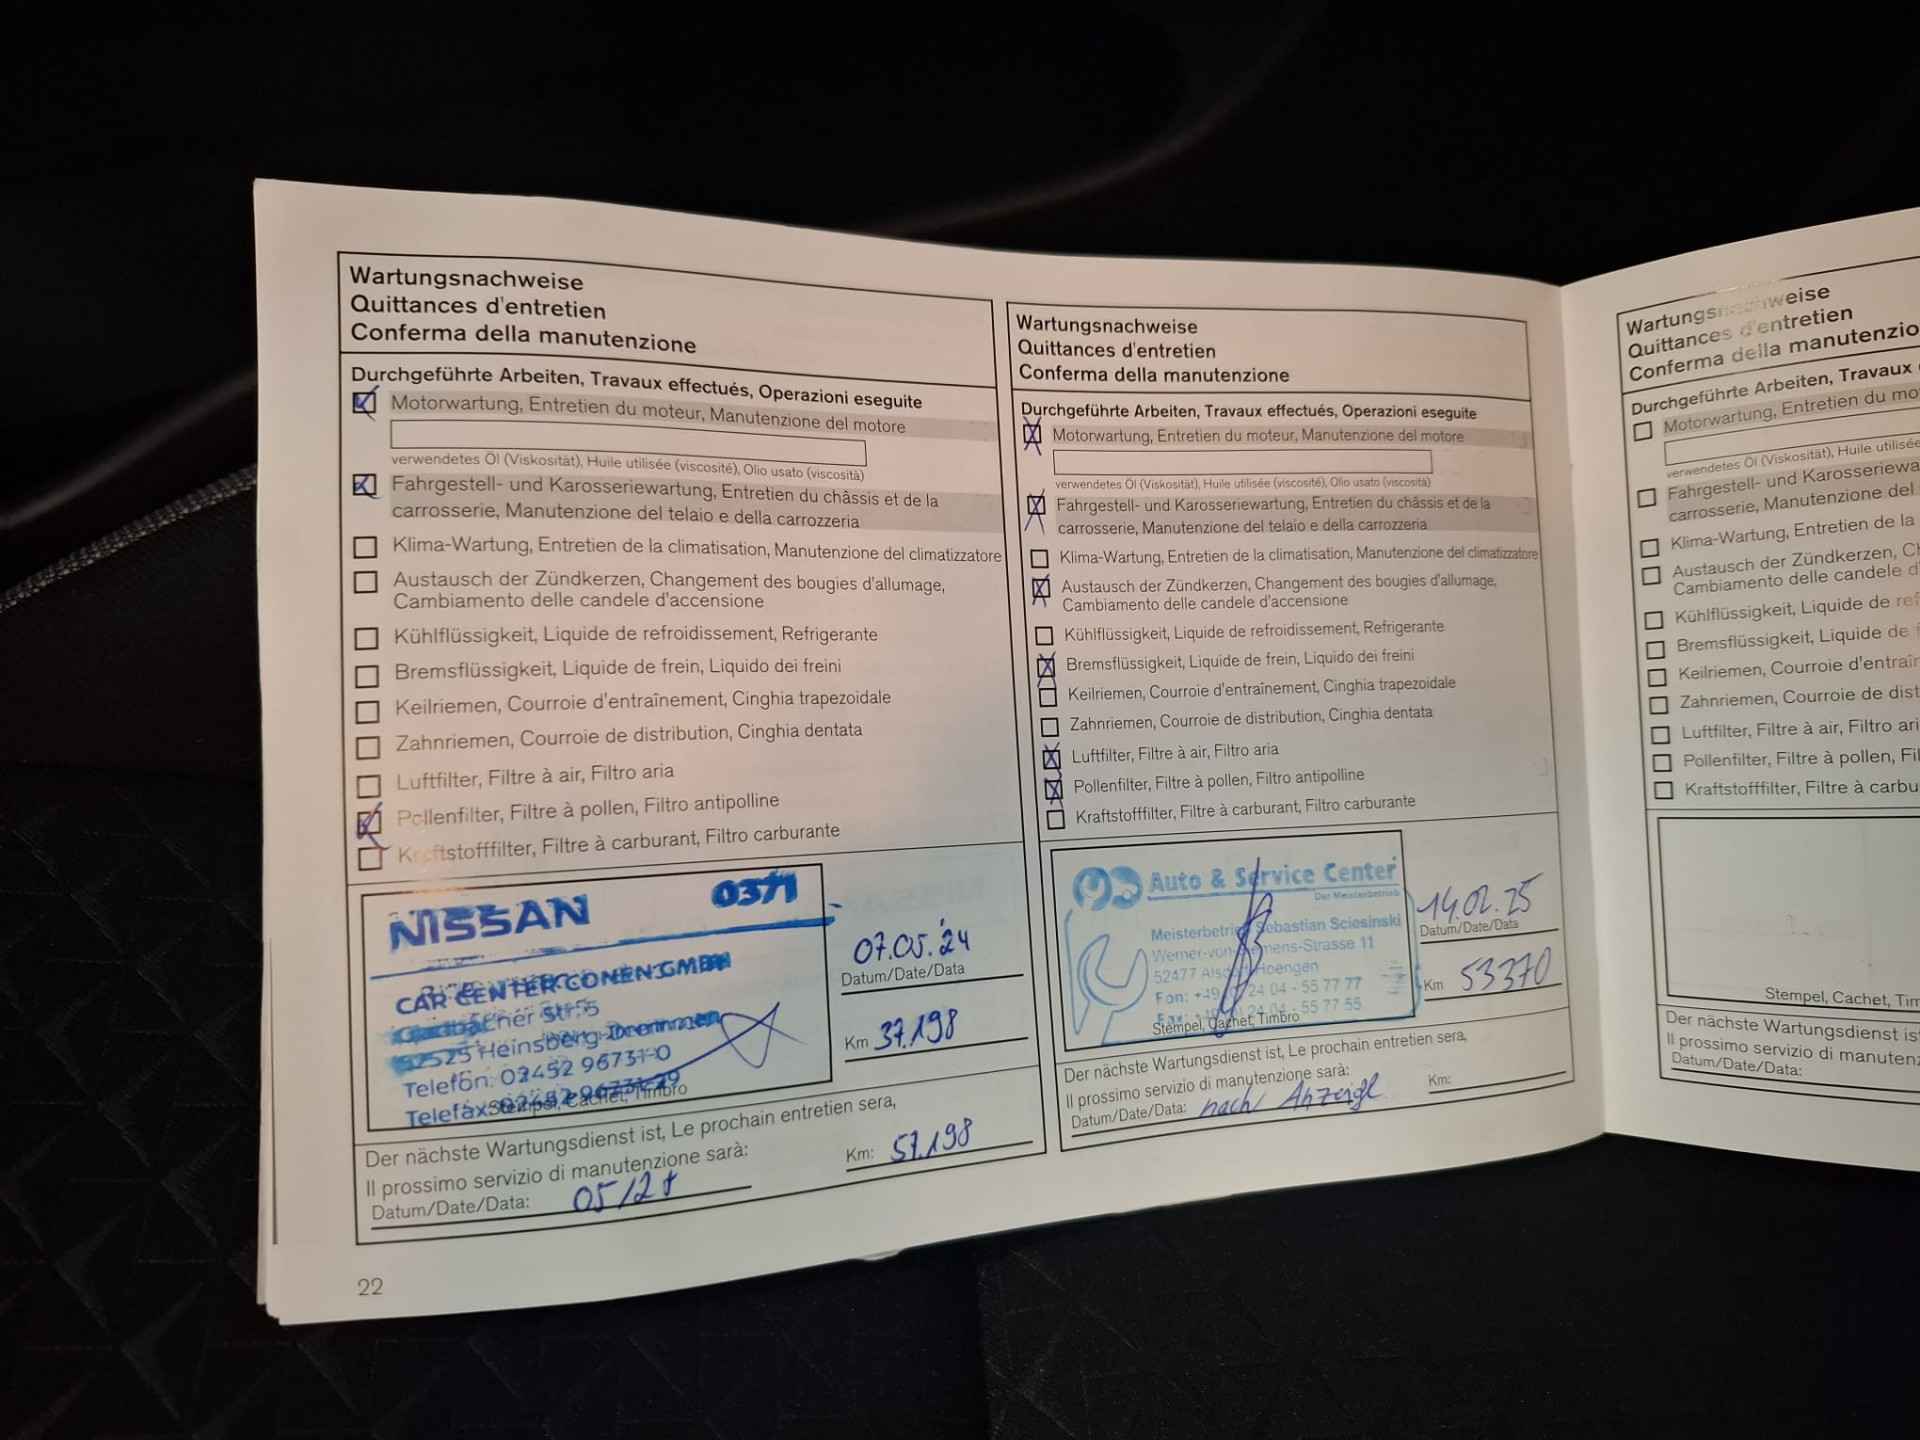 Wartungsnachweise
Quittances d'entretien
Conferma della manutenzione
Durchgeführte Arbeiten, Travaux effectués, Operazioni eseguite
Motorwartung, Entretien du moteur, Manutenzione del motore
verwendetes Öl (Viskosität), Huile utilisée (viscosité), Olio usato (viscosità)
Fahrgestell- und Karosseriewartung, Entretien du châssis et de la
carrosserie, Manutenzione del telaio e della carrozzeria
Klima-Wartung, Entretien de la climatisation, Manutenzione del climatizzatore
Austausch der Zündkerzen, Changement des bougies d'allumage,
Cambiamento delle candele d'accensione
Kühlflüssigkeit, Liquide de refroidissement, Refrigerante
Bremsflüssigkeit, Liquide de frein, Liquido dei freini
Keilriemen, Courroie d'entraînement, Cinghia trapezoidale
Zahnriemen, Courroie de distribution, Cinghia dentata
Luftfilter, Filtre à air, Filtro aria
Pollenfilter, Filtre à pollen, Filtro antipolline
Kraftstofffilter, Filtre à carburant, Filtro carburante
NISSAN 0371
CAR CENTER CONEN GMBH
Str. 5
52525 Heinsberg-Dremmen
Telefon: 02452 96731-0
Telefax: 02452 96731-29
Stempel, Cachet, Timbro
07.05.24
Datum/Date/Data
Km 37.198
Der nächste Wartungsdienst ist, Le prochain entretien sera,
Il prossimo servizio di manutenzione sarà:
Datum/Date/Data:
Km: 57.198
22
Wartungsnachweise
Quittances d'entretien
Conferma della manutenzione
Durchgeführte Arbeiten, Travaux effectués, Operazioni eseguite
Motorwartung, Entretien du moteur, Manutenzione del motore
verwendetes Öl (Viskosität), Huile utilisée (viscosité), Olio usato (viscosità)
Fahrgestell- und Karosseriewartung, Entretien du châssis et de la
carrosserie, Manutenzione del telaio e della carrozzeria
Klima-Wartung, Entretien de la climatisation, Manutenzione del climatizzatore
Austausch der Zündkerzen, Changement des bougies d'allumage,
Cambiamento delle candele d'accensione
Kühlflüssigkeit, Liquide de refroidissement, Refrigerante
Bremsflüssigkeit, Liquide de frein, Liquido dei freini
Keilriemen, Courroie d'entraînement, Cinghia trapezoidale
Zahnriemen, Courroie de distribution, Cinghia dentata
Luftfilter, Filtre à air, Filtro aria
Pollenfilter, Filtre à pollen, Filtro antipolline
Kraftstofffilter, Filtre à carburant, Filtro carburante
Auto & Service Center
Der Meisterbetrieb
Meisterbetrieb Sebastian Sciesinski
Werner-von-Siemens-Strasse 11
52477 Alsdorf-Hoengen
Fon: +49 24 04 - 55 77 77
Fax: 24 04 - 55 77 55
Stempel, Cachet, Timbro
14.02.25
Datum/Date/Data
Km 53370
Der nächste Wartungsdienst ist, Le prochain entretien sera,
Il prossimo servizio di manutenzione sarà:
Datum/Date/Data: nach Anzeige
Km:
Wartungsnachweise
Quittances d'entretien
Conferma della manutenzio
Durchgeführte Arbeiten, Travaux
Motorwartung, Entretien du mo
verwendetes Öl (Viskosität), Huile utilisée
Fahrgestell- und Karosseriewa
carrosserie, Manutenzione del
Klima-Wartung, Entretien de la
Austausch der Zündkerzen, C
Cambiamento delle candele d
Kühlflüssigkeit, Liquide de ref
Bremsflüssigkeit, Liquide de
Keilriemen, Courroie d'entraîn
Zahnriemen, Courroie de dist
Luftfilter, Filtre à air, Filtro ari
Pollenfilter, Filtre à pollen, Fil
Kraftstofffilter, Filtre à carbu
Stempel, Cachet, Tim
Der nächste Wartungsdienst is
Il prossimo servizio di manuten
Datum/Date/Data: